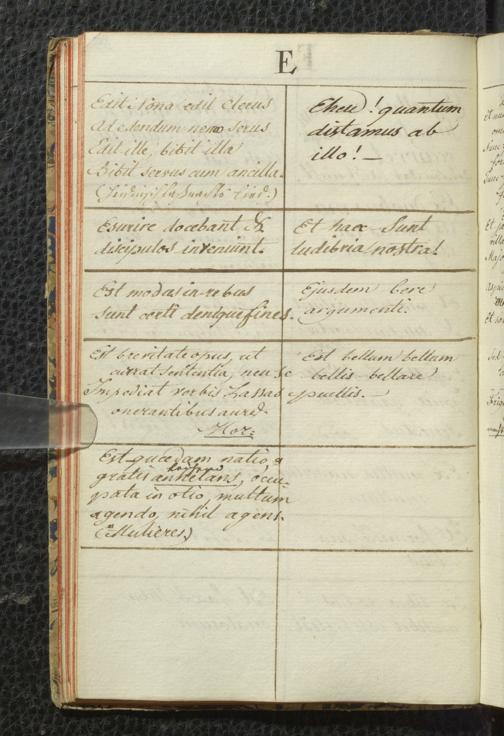 E
Edit Nona edit Clerus
Ad edendum nemo serus
Edit ille, bibit illa
Bibit servus cum ancilla.
Eheu! quantum
distamus ab
illo! —
Esurire docebant &
discipulos inveniunt.
Et haec sunt
ludibria nostra!
Est modus in rebus
sunt certi denique fines.
Ejusdem fere
argumenti.
Est brevitate opus, ut
currat sententia, neu se
Impediat verbis Lassas
onerantibus aures.
Hor:
Est bellum bellum
bellis bellare
puellis. —
Est quaedam natio,
gratis anhelans, occu-
pata in otio, multum
agendo, nihil agens.
(Mulieres)